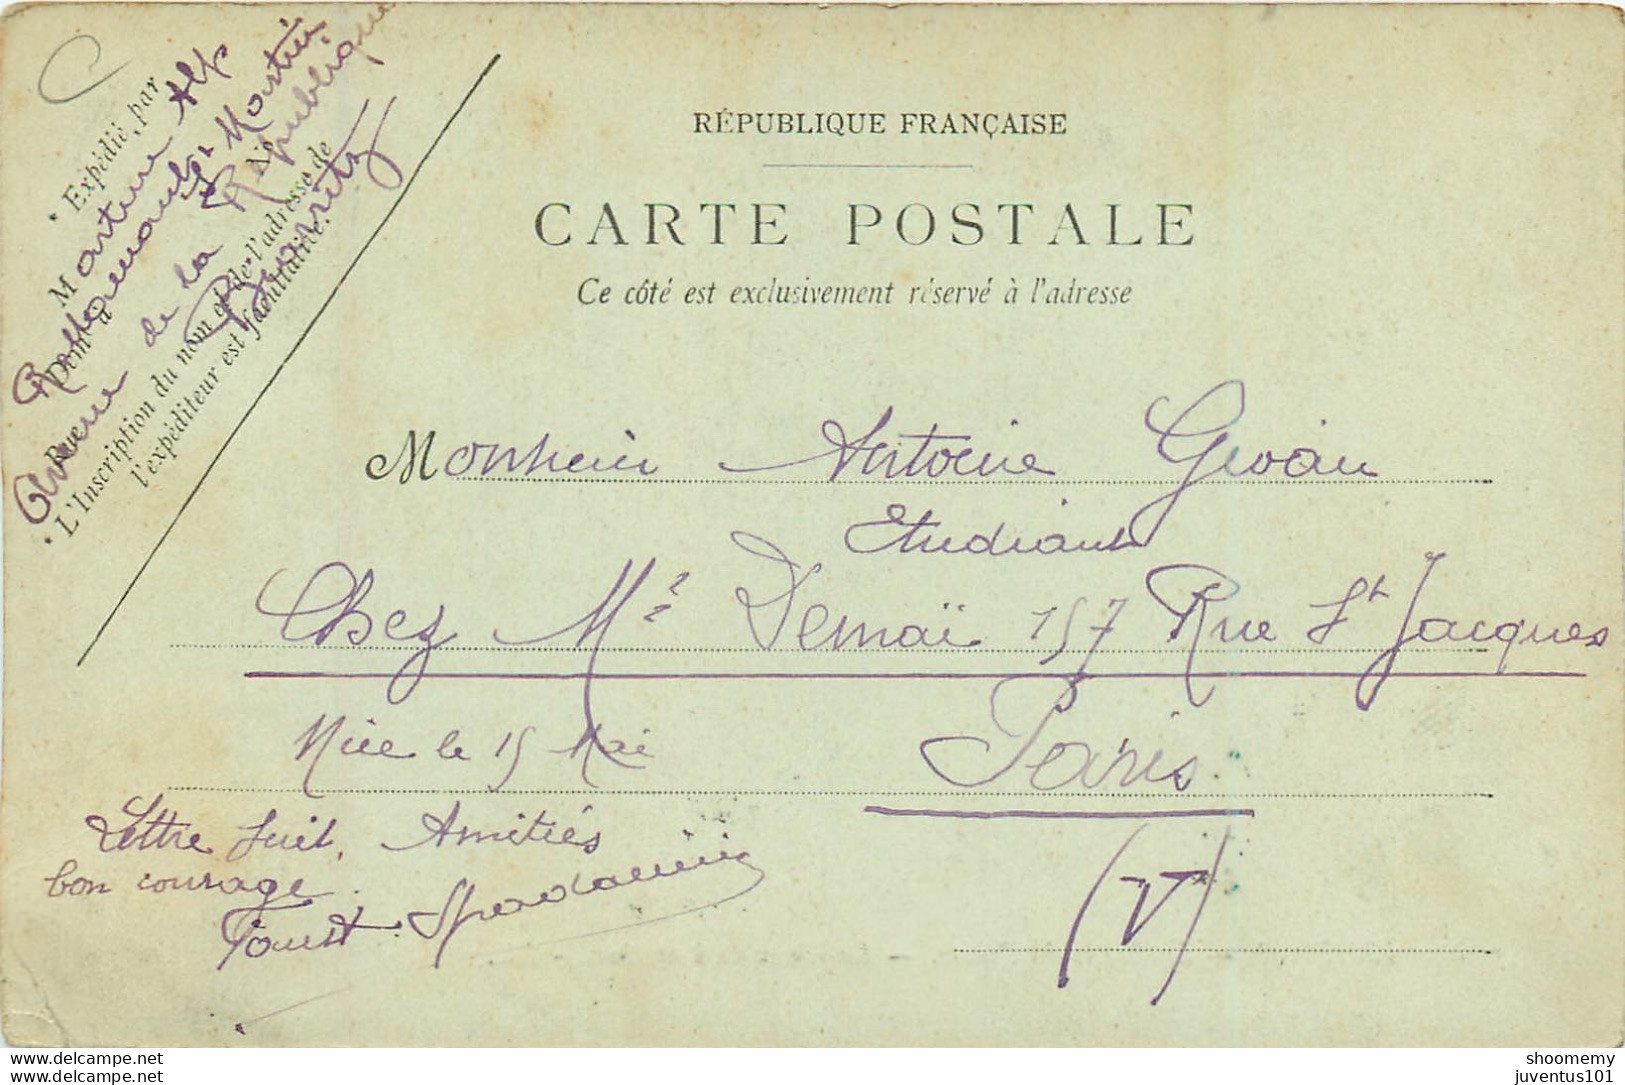 Expédié par
M
Demt à
Rue No
L'Inscription du nom et de l'adresse de
l'expéditeur est facultative.
Avenue de la République
Biarritz
RÉPUBLIQUE FRANÇAISE
CARTE POSTALE
Ce côté est exclusivement réservé à l'adresse
Monsieur Antoine
Etudiant
Chez Mr Demaï 157 Rue St Jacques
Paris
(V)
Nice le 15 Mai
Lettre suit. Amitiés
bon courage.
delcampe.net
delcampe.net
shoomemy
juventus101